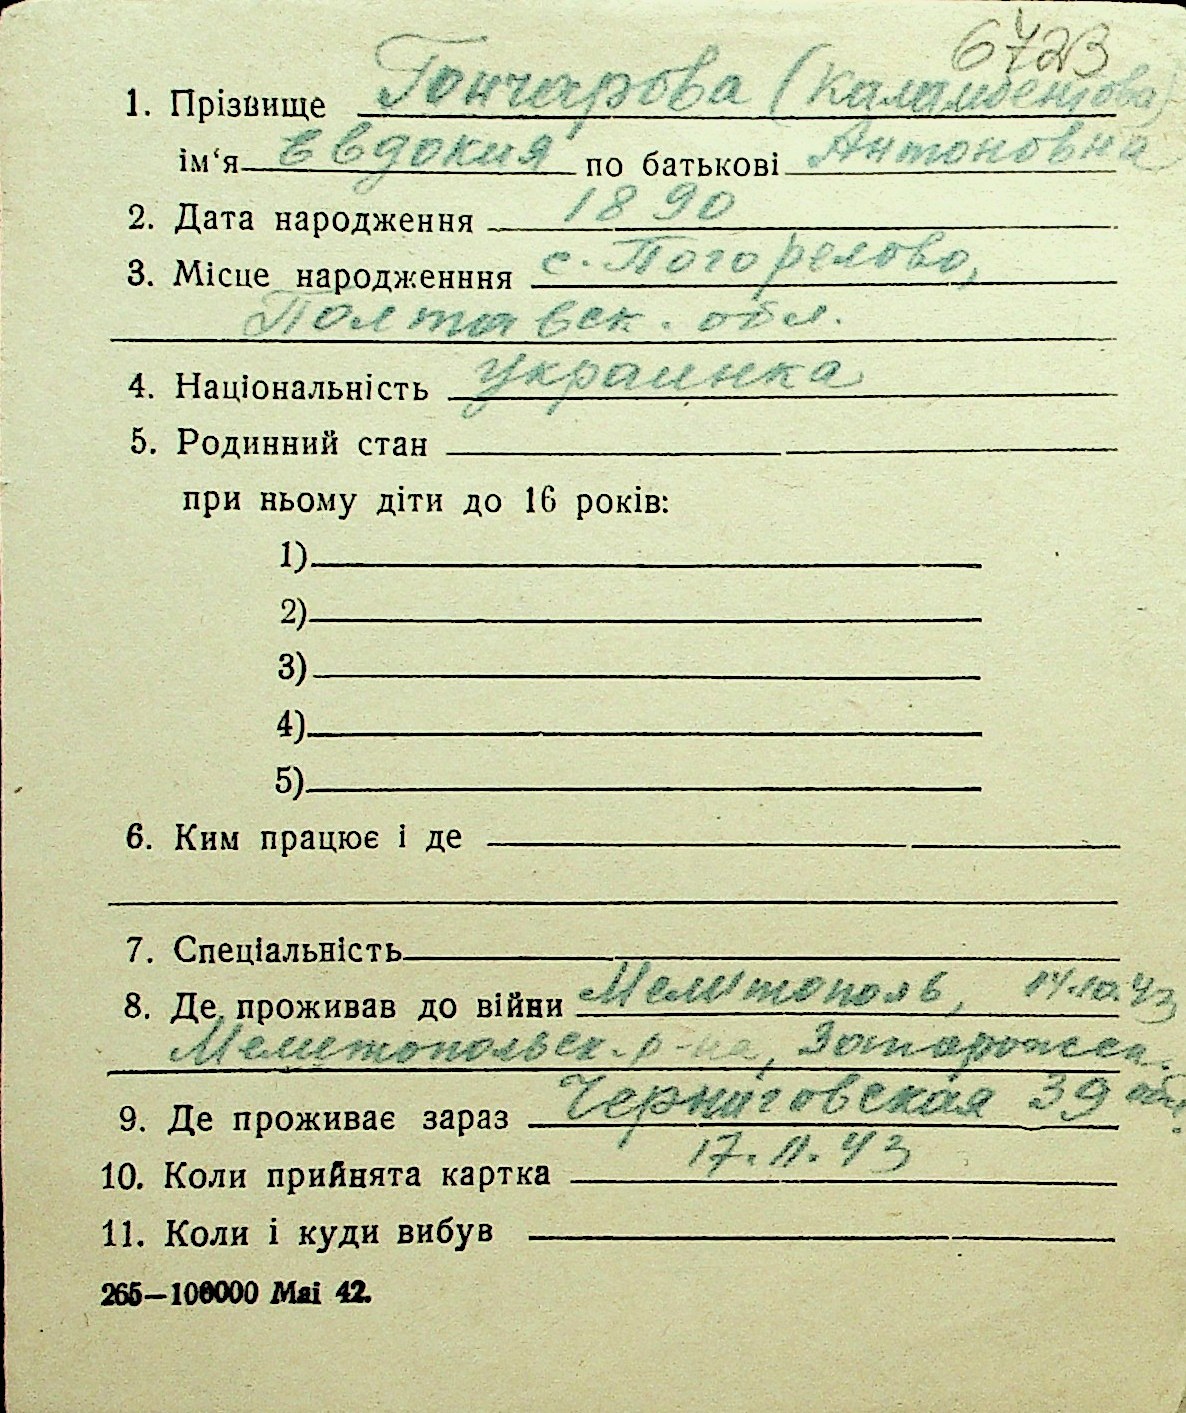 6723
1. Прізвище Гончарова (Каламбетова)
ім‘я Евдокия по батькові Антоновна
2. Дата народження 1890
3. Місце народженння с. Погорелово,
Полтавск. обл.
4. Національність украинка
5. Родинний стан
при ньому діти до 16 років:
1)
2)
3)
4)
5)
6. Ким працює і де
7. Спеціальність
8. Де проживав до війни Мелитополь, 14.10.43
Мелитопольск. р-на, Запорожск.
9. Де проживає зараз Черниговская 39 обл.
10. Коли прийнята картка 17.11.43
11. Коли і куди вибув
265—100000 Mai 42.